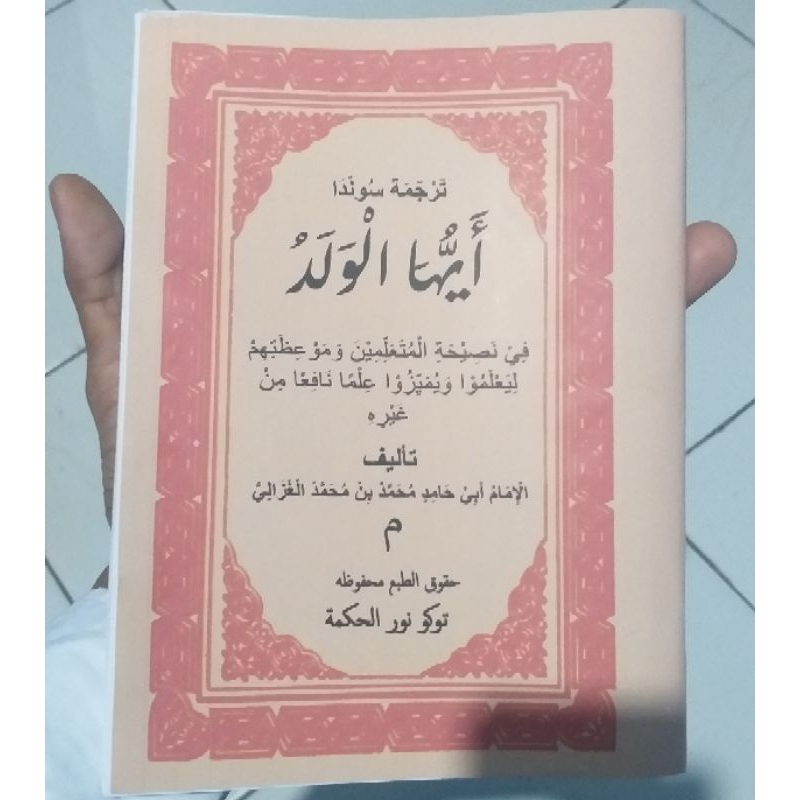 تَرْجَمَة سُونْدَا
أَيُّهَا الْوَلَدُ
فِيْ نَصِيْحَةِ الْمُتَعَلِّمِيْنَ وَمَوْعِظَتِهِمْ
لِيَعْلَمُوْا وَيُمَيِّزُوْا عِلْمًا نَافِعًا مِنْ
غَيْرِهِ
تأليف
الْإِمَامُ أَبِيْ حَامِدٍ مُحَمَّدْ بِنْ مُحَمَّدْ الْغَزَالِيُّ
م
حقوق الطبع محفوظه
توكو نور الحكمة